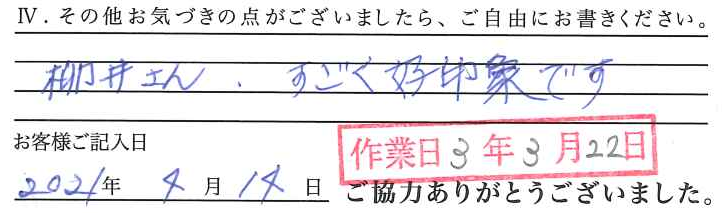 Ⅳ．その他お気づきの点がございましたら、ご自由にお書きください。
柳井さん、すごく好印象です
お客様ご記入日
作業日3年3月22日
2021年 4月14日 ご協力ありがとうございました。